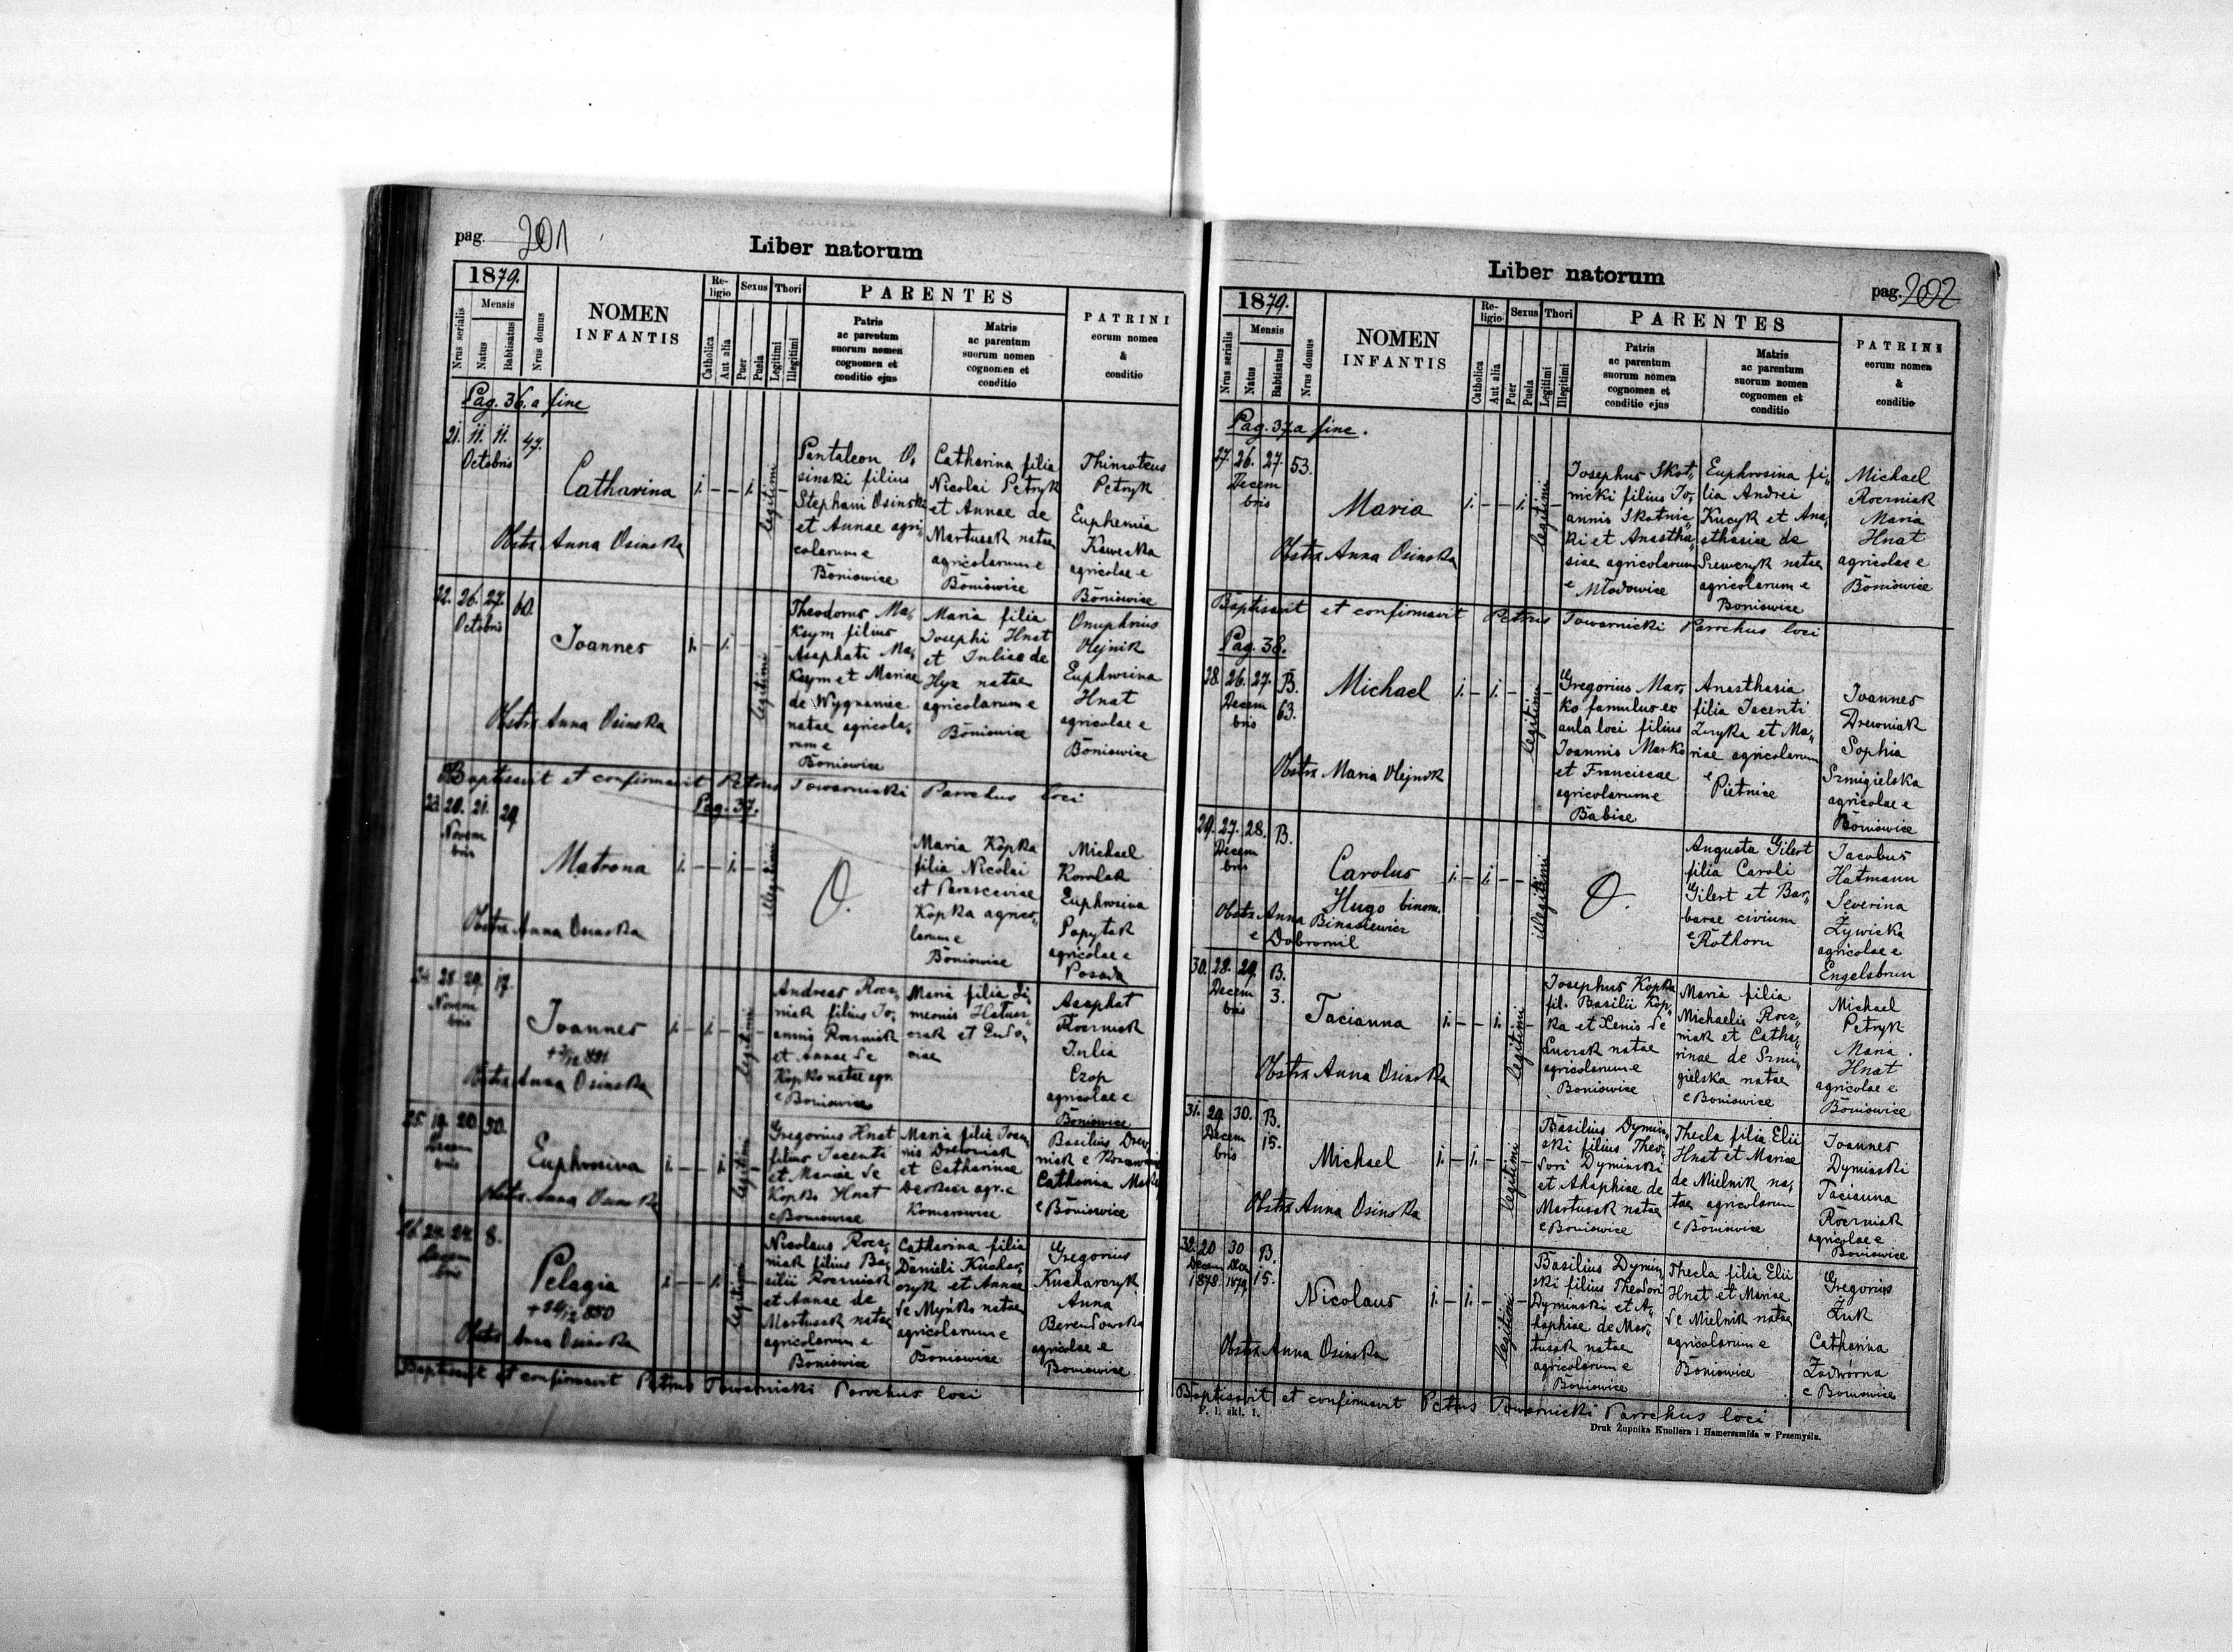 pag. 201
Liber natorum
1879.
Nrus serialis
Mensis
Natus
Babtisatus
Nrus domus
NOMEN
INFANTIS
Re-
ligio
Catholica
Aut alia
Sexus
Puer
Puela
Thori
Legitimi
Illegitimi
PARENTES
Patris
ac parentum
suorum nomen
cognomen et
conditio ejus
Matris
ac parentum
suorum nomen
cognomen et
conditio
PATRINI
eorum nomen
&
conditio
Pag. 36. a fine
21. 11. 11. 47.
Octobris
Catharina
1. — — 1. legitimi —
Obstx Anna Osinska
Pantaleon O,
sinski filius
Stephani Osinski
et Annae agri
colarum e
Boniowice
Catharina filia
Nicolai Petryk
et Annae de
Martusak natae
agricolarum e
Boniowice
Thimoteus
Petryk
Euphemia
Kawecka
agricolae e
Boniowice
22. 26. 27. 60.
Octobris
Joannes
1. — 1. — legitimi —
Obstx Anna Osinska
Theodorus Ma,
ksym filius
Asaphati Ma,
ksym et Mariae
de Wygnaniec
natae agricola,
rum e
Boniowice
Maria filia
Josephi Hnat
et Juliae de
Hyz natae
agricolarum e
Boniowice
Onuphrius
Olejnik
Euphrosina
Hnat
agricolae e
Boniowice
Baptisavit et confirmavit Petrus Towarnicki Parochus loci
Pag. 37.
23. 20. 21. 29.
Novem
bris
Matrona
1. — — 1. — illegitimi
Obstx Anna Osinska
O.
Maria Kopka
filia Nicolai
et Parasceviae
Kopka agrico,
larum e
Boniowice
Michael
Kowalak
Euphrosina
Papytak
agricolae e
Posada
24. 28. 29. 17.
Novem
bris
Joannes
1. — 1. — legitimi —
Obstx Anna Osinska
Andreas Rocz,
niak filius Jo,
annis Roczniak
et Annae de
Kopko natae agr.
e Boniowice
Maria filia Si,
meonis
et Eudo,
ciae
Asaphat
Roczniak
Julia
Czop
agricolae e
Boniowice
25. 19. 20. 50.
Decem
bris
Euphrosina
1. — — 1. legitimi —
Obstx Anna Osinska
Gregorius Hnat
filius Jacenti
et Mariae de
Kopko Hnat
e Boniowice
Maria filia Joan,
nis Drewniak
et Catharinae
agr. e
Komarowice
Basilius Drew
niak e
Catharina
e Boniowice
26. 24. 24. 8.
Decem
bris
Pelagia
1. — — 1. legitimi —
Obstx Anna Osinska
Nicolaus Rocz,
niak filius Ba,
silii Roczniak
et Annae de
Martusak natae
agricolarum e
Boniowice
Catharina filia
Danieli Kuchar,
czyk et Annae
de Myńko natae
agricolarum e
Boniowice
Gregorius
Kucharczyk
Anna
Berendowska
agricolae e
Boniowice
Baptisavit et confirmavit Petrus Towarnicki Parochus loci
Liber natorum
pag. 202
1879.
Nrus serialis
Mensis
Natus
Babtisatus
Nrus domus
NOMEN
INFANTIS
Re-
ligio
Catholica
Aut alia
Sexus
Puer
Puela
Thori
Legitimi
Illegitimi
PARENTES
Patris
ac parentum
suorum nomen
cognomen et
conditio ejus
Matris
ac parentum
suorum nomen
cognomen et
conditio
PATRINI
eorum nomen
&
conditio
Pag. 37. a fine.
27. 26. 27. 53.
Decem
bris
Maria
1. — — 1. legitimi —
Obstx Anna Osinska
Josephus Skot,
nicki filius Jo,
annis Skotnic,
ki et Anastha,
siae agricolarum
e Młodowice
Euphrosina fi,
lia Andrei
Kucyk et Ana,
sthasiae de
Szewczyk natae
agricolarum e
Boniowice
Michael
Roczniak
Maria
Hnat
agricolae e
Boniowice
Baptisavit et confirmavit Petrus Towarnicki Parochus loci
Pag. 38.
28. 26. 27. B.
Decem 63.
bris
Michael
1. — 1. — legitimi —
Obstx Maria Olejnik
Gregorius Mar,
ko famulus ex
aula loci filius
Joannis Marko
et Franciscae
agricolarum e
Babice
Anasthasia
filia Jacenti
Zuyka et Ma,
riae agricolarum
e
Piętnice
Joannes
Drewniak
Sophia
Szmigielska
agricolae e
Boniowice
29. 27. 28. B.
Decem
bris
Carolus
Hugo binom.
1. — 1. — — illegitimi
Obstx Anna Binasiewicz
e Dobromil
O.
Augusta Gilert
filia Caroli
Gilert et Bar,
barae civium
e Rothoru
Jacobus
Hatmann
Severina
Żywicka
agricolae e
Engelsbrun
30. 28. 29. B.
Decem 3.
bris
Tacianna
1. — — 1. legitimi —
Obstx Anna Osinska
Josephus Kopka
fil. Basilii Kop,
ka et Xenis de
Łuczak natae
agricolarum e
Boniowice
Maria filia
Michaelis Rocz,
niak et Catha,
rinae de Szmi,
gielska natae
e Boniowice
Michael
Petryk
Maria
Hnat
agricolae e
Boniowice
31. 29. 30. B.
Decem 15.
bris
Michael
1. — 1. — legitimi —
Obstx Anna Osinska
Basilius Dymin,
ski filius Theo,
dori Dyminski
et Ahaphiae de
Martusak natae
e Boniowice
Thecla filia Elii
Hnat et Mariae
de Mielnik na,
tae agricolarum
e Boniowice
Joannes
Dyminski
Tacianna
Roczniak
agricolae e
Boniowice
32. 20 30 B.
Decem 15.
1878. 1879.
Nicolaus
1. — 1. — legitimi —
Obstx Anna Osinska
Basilius Dymin,
ski filius Theodori
Dyminski et A,
haphiae de Mar,
tusak natae
agricolarum e
Boniowice
Thecla filia Elii
Hnat et Mariae
de Mielnik natae
agricolarum e
Boniowice
Gregorius
Żuk
Catharina
Zadwórna
e Boniowice
Baptisavit et confirmavit Petrus Towarnicki Parochus loci
F. l. skl. 1.
Druk Żupnika Knollera i Hamerszmida w Przemyślu.